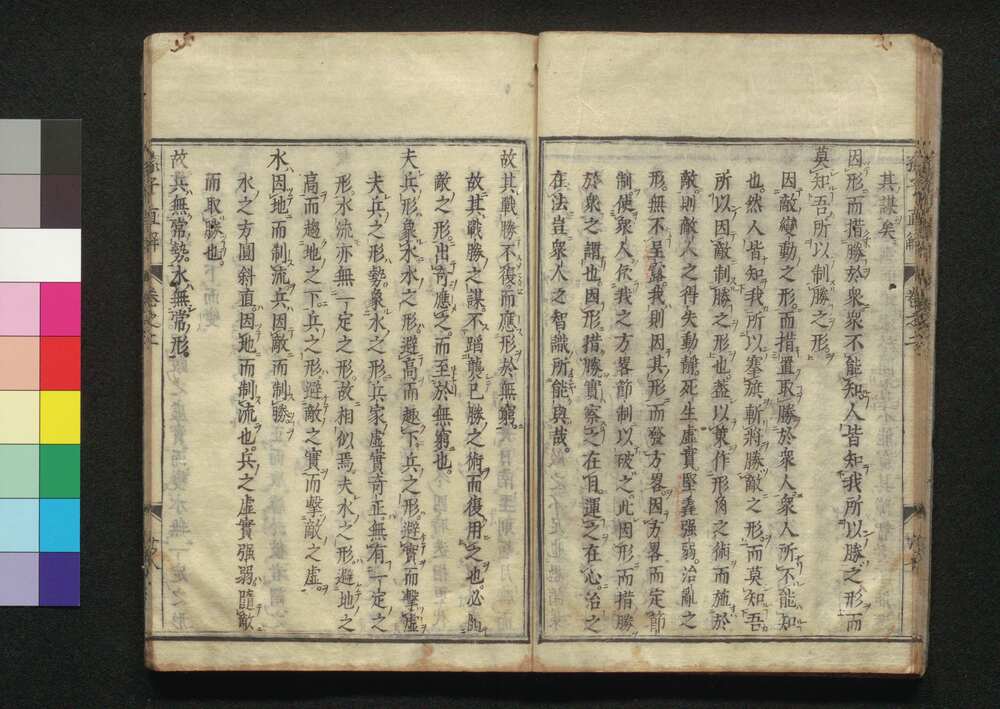 其謀矣
因形而措勝於衆衆不能知人皆知我所以勝之形而
莫知吾所以制勝之形
因敵變動之形而措置取勝於衆人衆人所不能知
也然人皆知我所以搴旗斬將勝敵之形而莫知吾
所以因敵制勝之形也蓋以策作形角之術而施於
敵則敵人之得失動静死生虛實堅毳强弱治亂之
形無不呈露我則因其形而發方畧因方畧而定節
制使衆人依我之方畧節制以破之此因形而措勝
於衆之謂也因形措勝實察之在目運之在心治之
在法豈衆人之智識所能與哉
故其戰勝不復而應形於無窮
故其戰勝之謀不蹈襲已勝之術而復用之也必
敵之形出奇應之而至於無窮也
夫兵形象水水之形避高而趨下兵之形避實而擊虛
夫兵之形勢象水之形兵家虛實奇正無有一定之
形水流亦無一定之形故相似焉夫水之形避地之
高而趨地之下兵之形避敵之實而擊敵之虛
水因地而制流兵因敵而制勝
水之方圓斜直因地而制流也兵之虛實强弱隨敵
而取勝也
故兵無常勢水無常形
孫子直解 卷之二